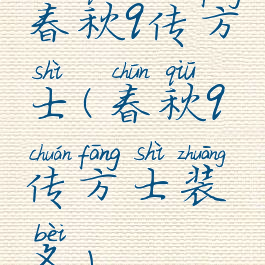 春秋9传方
shì chūn qiū
士(春秋9
chuán fāng shì zhuāng
传方士装
bèi
备)